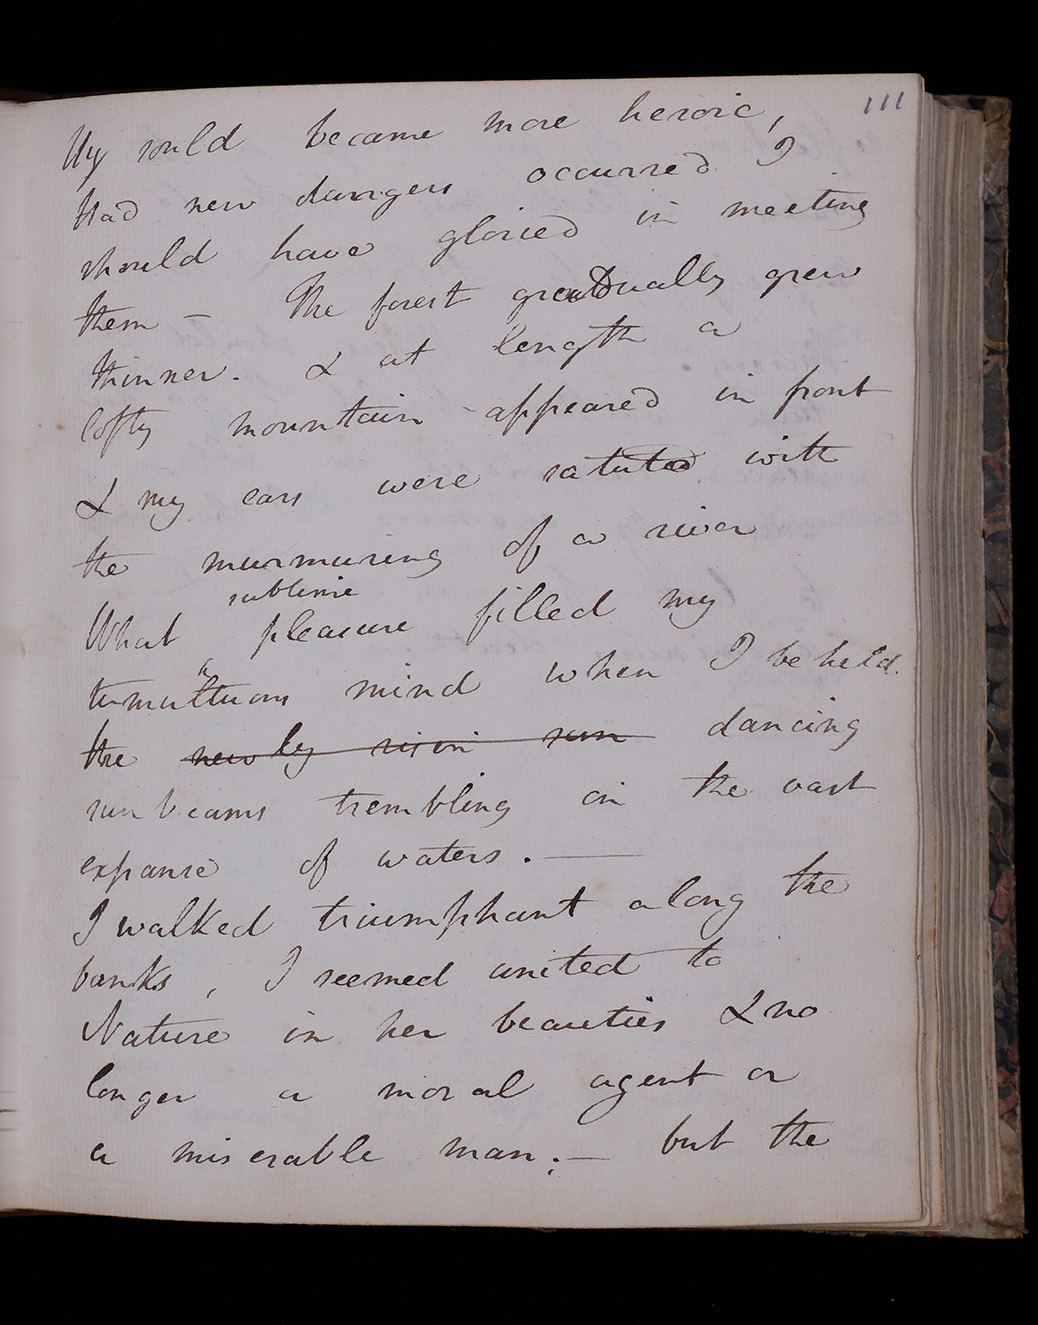 111
My sould became more heroic,
Had new dangers occurred I
should have gloried in meeting
them – The forest gradually grew
thinner. & at length a
lofty mountain appeared in front
& my ears were saluted with
the murmuring of a river
sublime
What pleasure filled my
tumultuous mind when I beheld
the newly risin sun dancing
sun beams trembling on the vast
expanse of waters. —
I walked triumphant along the
banks, I seemed united to
Nature in her beauties & no
longer a moral agent or
a miserable man; – but the